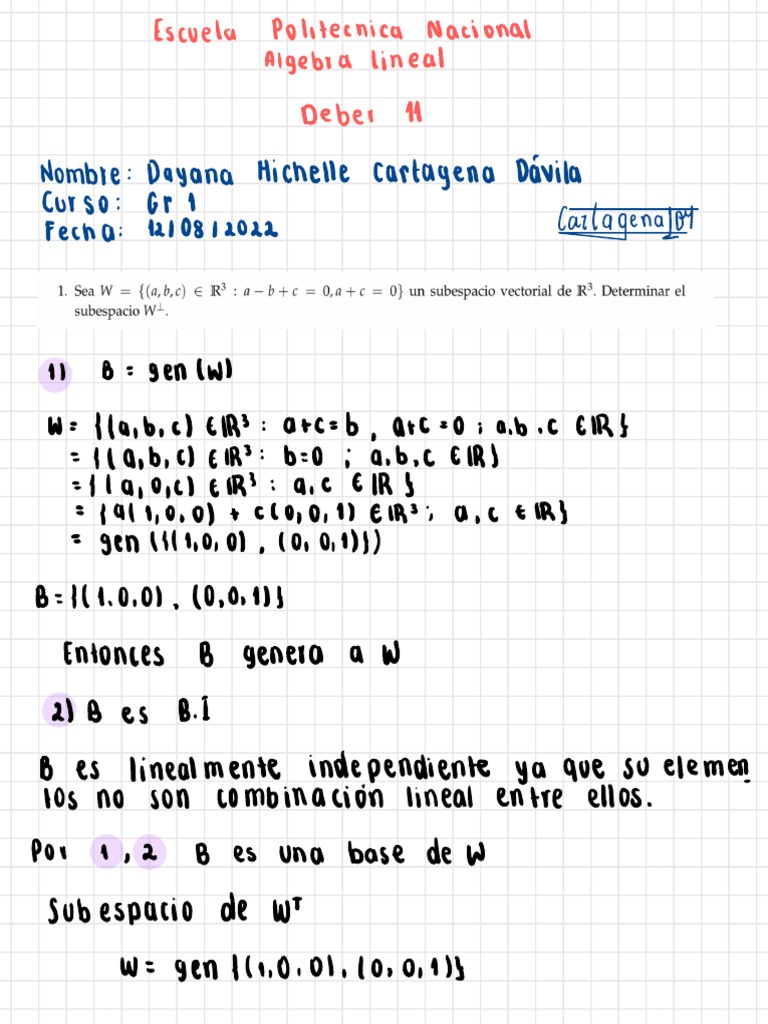 Escuela Politecnica Nacional
Algebra lineal
Deber 11
Nombre: Dayana Michelle Cartagena Dávila
Curso: Gr 1
Fecha: 12/08/2022
1. Sea W = {(a, b, c) ∈ ℝ³ : a − b + c = 0, a + c = 0} un subespacio vectorial de ℝ³. Determinar el
subespacio W⊥.
1) B = gen (W)
W = {(a, b, c) ∈ ℝ³ : a+c = b , a+c = 0 ; a.b.c ∈ ℝ}
= {(a, b, c) ∈ ℝ³ : b=0 ; a,b,c ∈ ℝ}
= {(a, 0, c) ∈ ℝ³ : a,c ∈ ℝ}
= {a(1,0,0) + c(0,0,1) ∈ ℝ³; a,c ∈ ℝ}
= gen ({(1,0,0) , (0,0,1)})
B = {(1.0,0) , (0,0,1)}
Entonces B genera a W
2) B es B.I
B es linealmente independiente ya que su elemen
tos no son combinación lineal entre ellos.
Por 1, 2 B es una base de W
Subespacio de Wᵀ
W = gen {(1,0,0), (0,0,1)}